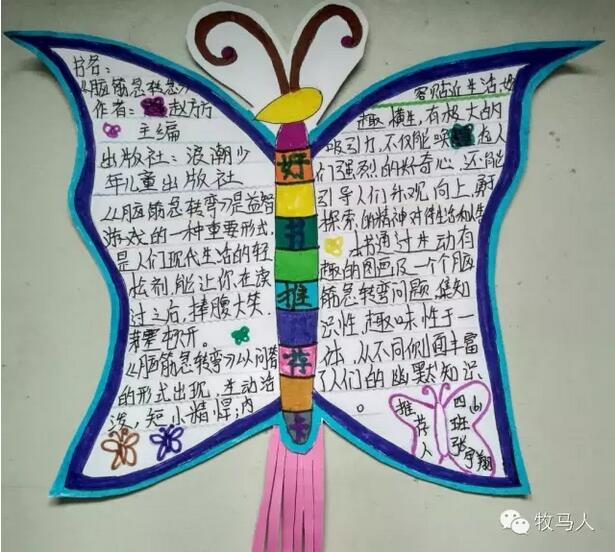 书名：
《脑筋急转弯》
作者：赵方方
主编
出版社：浪潮少
年儿童出版社
《脑筋急转弯》是益智
游戏的一种重要形式，
是人们现代生活的轻
松剂，能让你在读
过之后，捧腹大笑，
茅塞顿开。
《脑筋急转弯》以问答
的形式出现，生动活
泼，短小精悍；内
好
书
推
荐
卡
容贴近生活，妙
趣横生，有极大的
吸引力，不仅能唤起人
们强烈的好奇心，还能
引导人们乐观、向上、勇于
探索的精神对待生活和人生
本书通过生动有
趣的图画及一个个脑
筋急转弯问题，集知
识性、趣味性于一
体，从不同侧面丰富
了人们的幽默知识
。
推荐人
四(1)班
张宇翔
牧马人